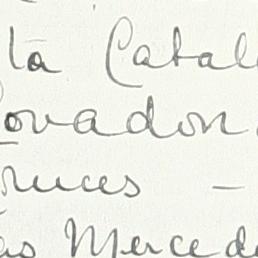 ta Catal
ovadon
ruces -
as Mercede